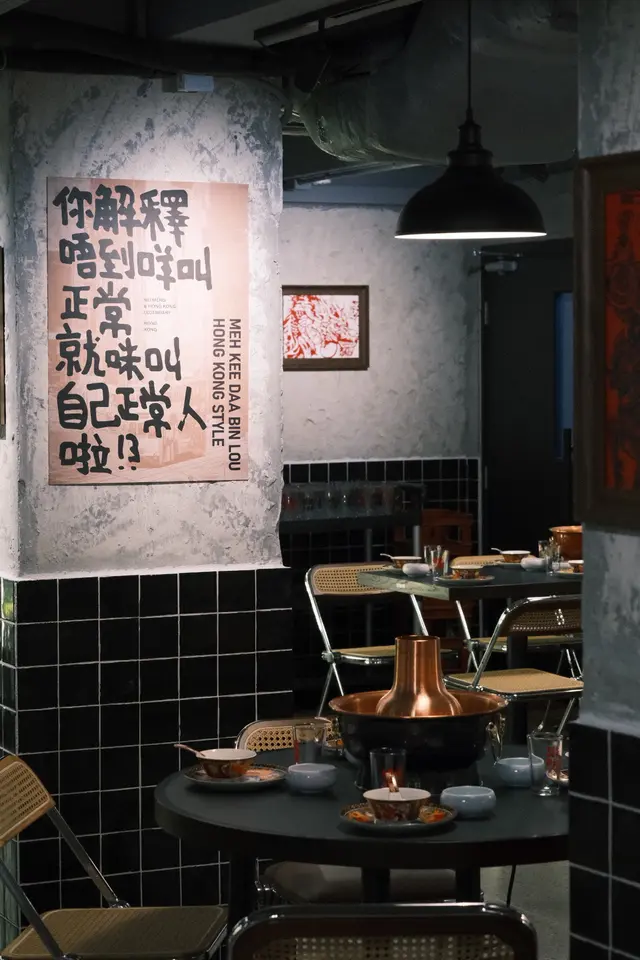 你解釋
唔到咩叫
正常
就咪叫
自己正常人
啦!?
MEH KEE DAA BIN LOU
HONG KONG STYLE